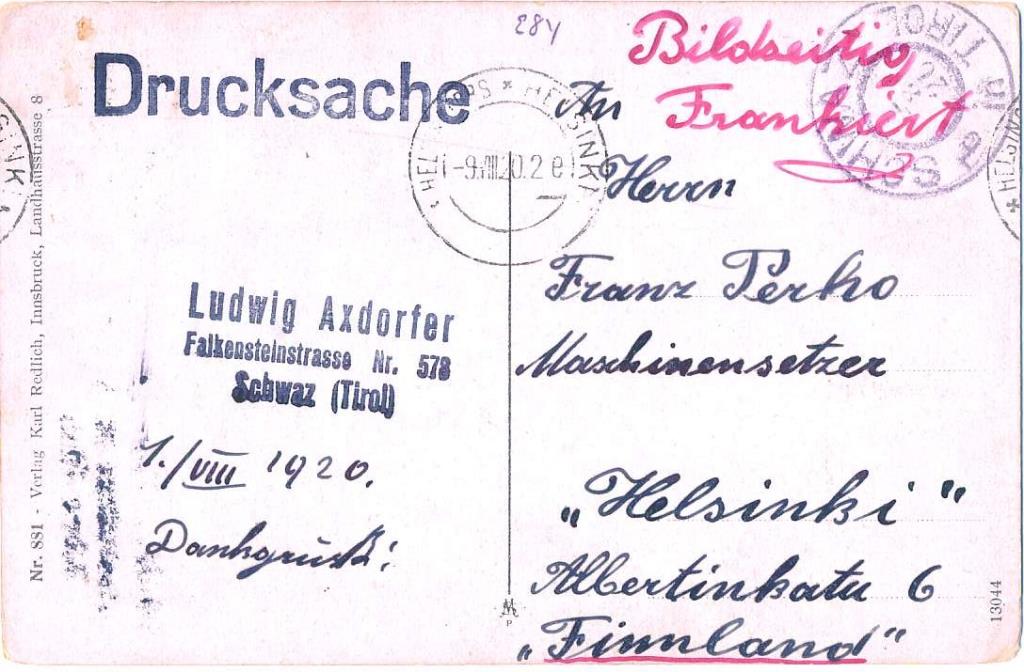 284
Drucksache
Bildseitig
Frankiert
An
Herrn
Franz Perko
Maschinensetzer
„Helsinki"
Albertinkatu 6
„Finnland"
Ludwig Axdorfer
Falkensteinstrasse Nr. 578
Schwaz (Tirol)
1./VIII 1920.
Dankgruß!
Nr. 881 - Verlag Karl Redlich, Innsbruck, Landhausstrasse 8
HELSINKI
TIROL
13044